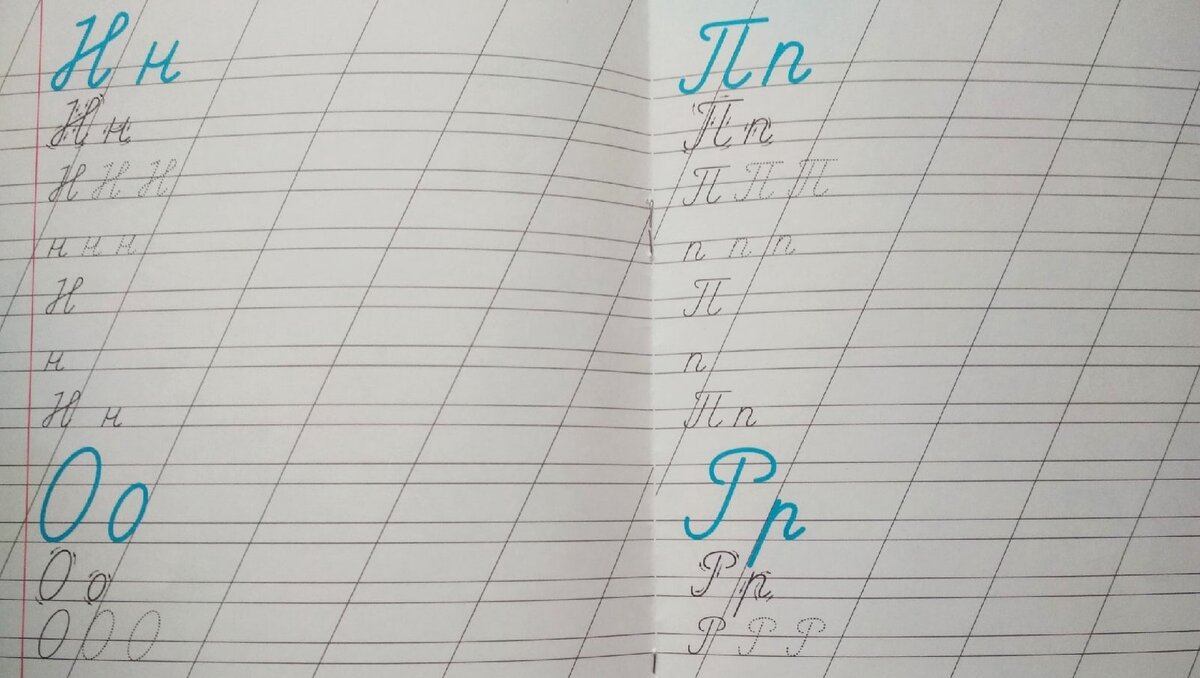 Н н
Н н
Н Н Н
н н н
Н
н
Н н
О о
О о
О О О
П п
П п
П П П
п п п
П
п
П п
Р р
Р р
Р Р Р